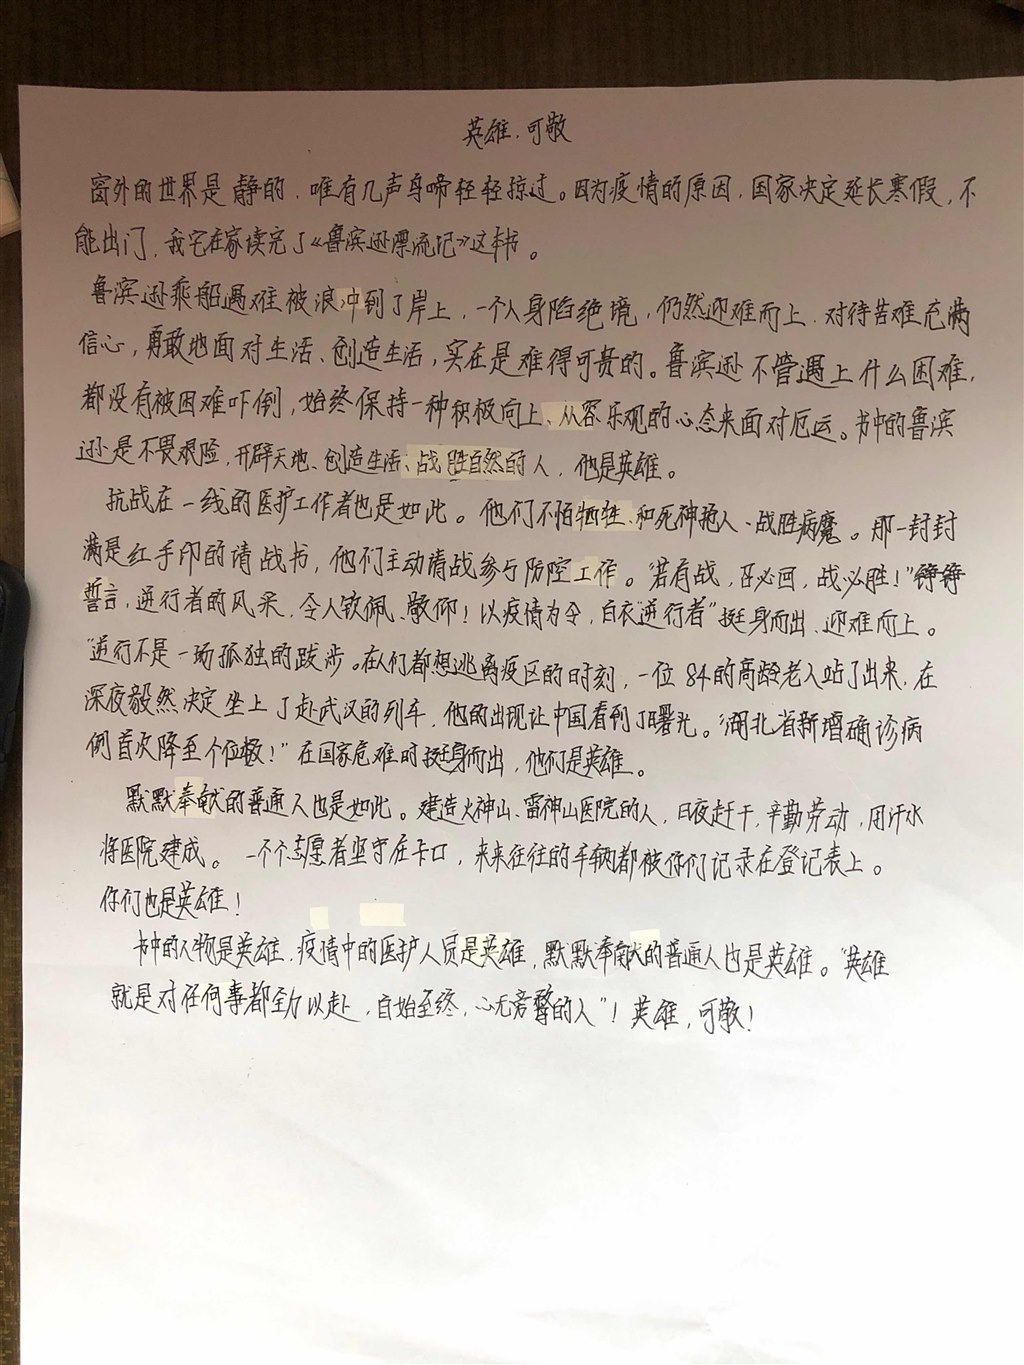 英雄，可敬
窗外的世界是静的，唯有几声鸟啼轻轻掠过。因为疫情的原因，国家决定延长寒假，不
能出门，我宅在家读完了《鲁滨逊漂流记》这本书。
鲁滨逊乘船遇难被浪冲到了岸上，一个人身陷绝境，仍然迎难而上，对待苦难充满
信心，勇敢地面对生活、创造生活，实在是难得可贵的。鲁滨逊不管遇上什么困难，
都没有被困难吓倒，始终保持一种积极向上、从容乐观的心态来面对厄运。书中的鲁滨
逊是不畏艰险，开辟天地、创造生活、战胜自然的人，他是英雄。
抗战在一线的医护工作者也是如此。他们不怕牺牲、和死神抢人、战胜病魔。那一封封
满是红手印的请战书，他们主动请战参与防控工作。“若有战，召必回，战必胜！”铮铮
誓言，逆行者的风采，令人钦佩、敬仰！以疫情为令，白衣“逆行者”挺身而出、迎难而上。
“逆行不是一场孤独的跋涉。在人们都想逃离疫区的时刻，一位84的高龄老人站了出来，在
深夜毅然决定坐上了赴武汉的列车，他的出现让中国看到了曙光。“湖北省新增确诊病
例首次降至个位数！”在国家危难时挺身而出，他们是英雄。
默默奉献的普通人也是如此。建造火神山、雷神山医院的人，日夜赶干，辛勤劳动，用汗水
将医院建成。一个个志愿者坚守在卡口，来来往往的车辆都被你们记录在登记表上。
你们也是英雄！
书中的人物是英雄，疫情中的医护人员是英雄，默默奉献的普通人也是英雄。“英雄
就是对任何事都全力以赴，自始至终，心无旁骛的人”！英雄，可敬！